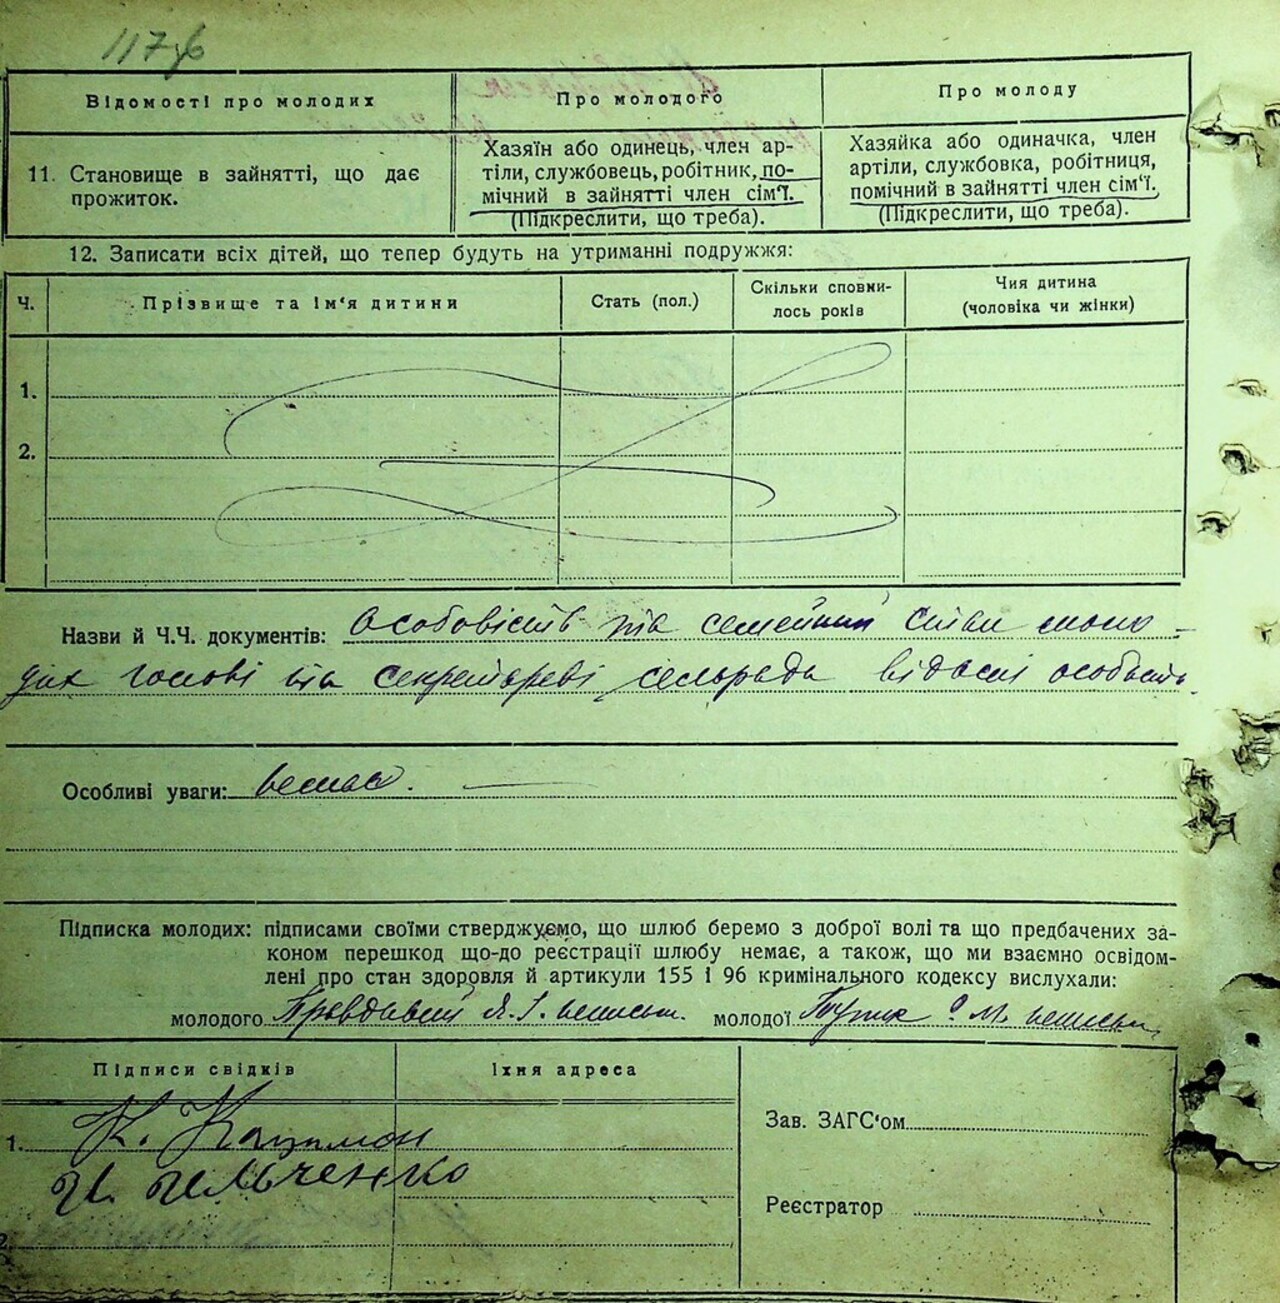 117
Відомості про молодих
Про молодого
Про молоду
11. Становище в зайнятті, що дає
прожиток.
Хазяїн або одинець, член ар-
тіли, службовець, робітник, по-
мічний в зайнятті член сім'ї.
(Підкреслити, що треба).
Хазяйка або одиначка, член
артіли, службовка, робітниця,
помічний в зайнятті член сім'ї.
(Підкреслити, що треба).
12. Записати всіх дітей, що тепер будуть на утриманні подружжя:
Ч.
Прізвище та ім'я дитини
Стать (пол.)
Скільки сповни-
лось років
Чия дитина
(чоловіка чи жінки)
1.
2.
Назви й Ч.Ч. документів: Особовість та семейний стан моло-
дих голові та секретареві сельрада відомі особисто.
Особливі уваги: немає.
Підписка молодих: підписами своїми стверджуємо, що шлюб беремо з доброї волі та що предбачених за-
коном перешкод що-до реєстрації шлюбу немає, а також, що ми взаємно освідом-
лені про стан здоровля й артикули 155 і 96 кримінального кодексу вислухали:
молодого Я. І. молодої М.
Підписи свідків
Їхня адреса
1. К.
И. Ильченко
2.
Зав. ЗАГС'ом
Реєстратор